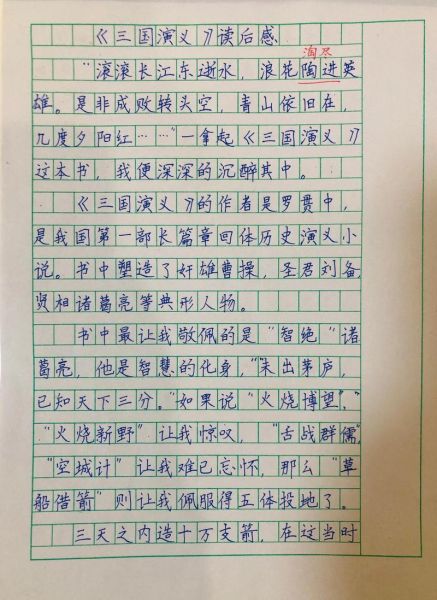 《三国演义》读后感
淘尽
“滚滚长江东逝水，浪花陶进英
雄。是非成败转头空，青山依旧在，
几度夕阳红……”一拿起《三国演义》
这本书，我便深深的沉醉其中。
《三国演义》的作者是罗贯中，
是我国第一部长篇章回体历史演义小
说。书中塑造了奸雄曹操，圣君刘备，
贤相诸葛亮等典形人物。
书中最让我敬佩的是“智绝”诸
葛亮，他是智慧的化身，“未出茅庐，
已知天下三分。”如果说“火烧博望”，
“火烧新野”让我惊叹，“舌战群儒”
“空城计”让我难已忘怀，那么“草
船借箭”则让我佩服得五体投地了。
三天之内造十万支箭，在这当时